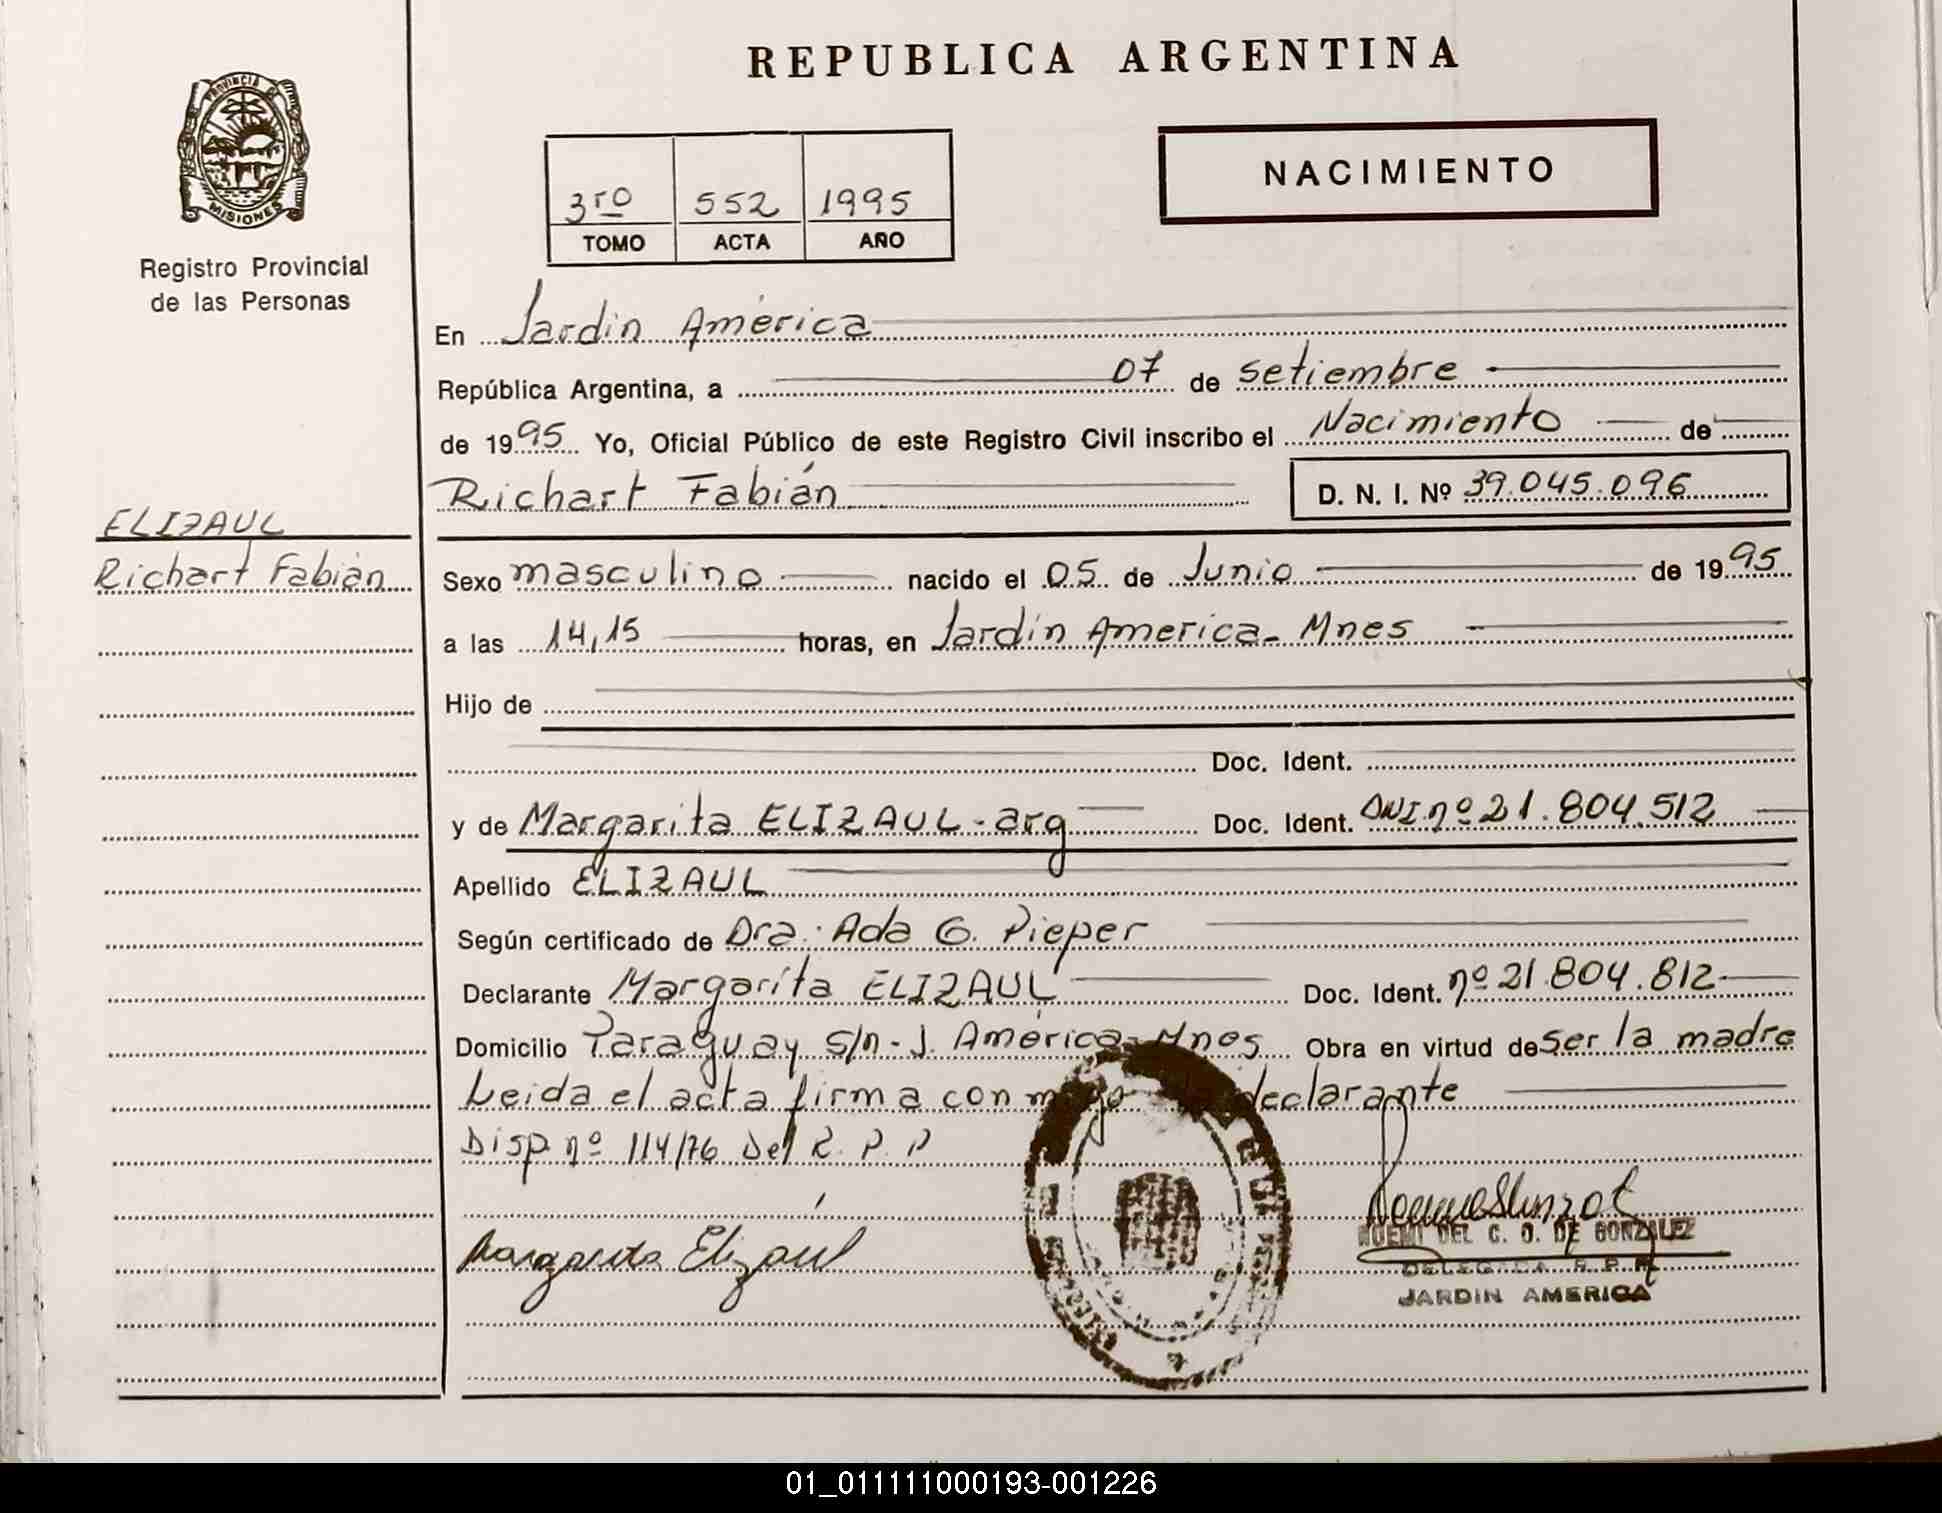 REPUBLICA ARGENTINA
PROVINCIA DE
MISIONES
Registro Provincial
de las Personas
NACIMIENTO
3ro 552 1995
TOMO ACTA AÑO
En Jardin América
República Argentina, a 07 de setiembre
de 1995 Yo, Oficial Público de este Registro Civil inscribo el Nacimiento de
Richart Fabián D. N. I. Nº 39.045.096
ELIZAUL
Richart Fabián
Sexo masculino nacido el 05 de Junio de 1995
a las 14,15 horas, en Jardín America- Mnes
Hijo de
Doc. Ident.
y de Margarita ELIZAUL - arg Doc. Ident. DNI. nº 21.804.512
Apellido ELIZAUL
Según certificado de Dra. Ada G. Pieper
Declarante Margarita ELIZAUL Doc. Ident. nº 21.804.812
Domicilio Paraguay s/n - J. América- Mnes Obra en virtud de ser la madre
Leida el acta firma conmigo declarante
Disp nº 114/76 Del R. P. P
Margarita Elizaul
NOEMI DEL C. O. DE GONZALEZ
DELEGADA R. P. P.
JARDIN AMERICA
01_011111000193-001226